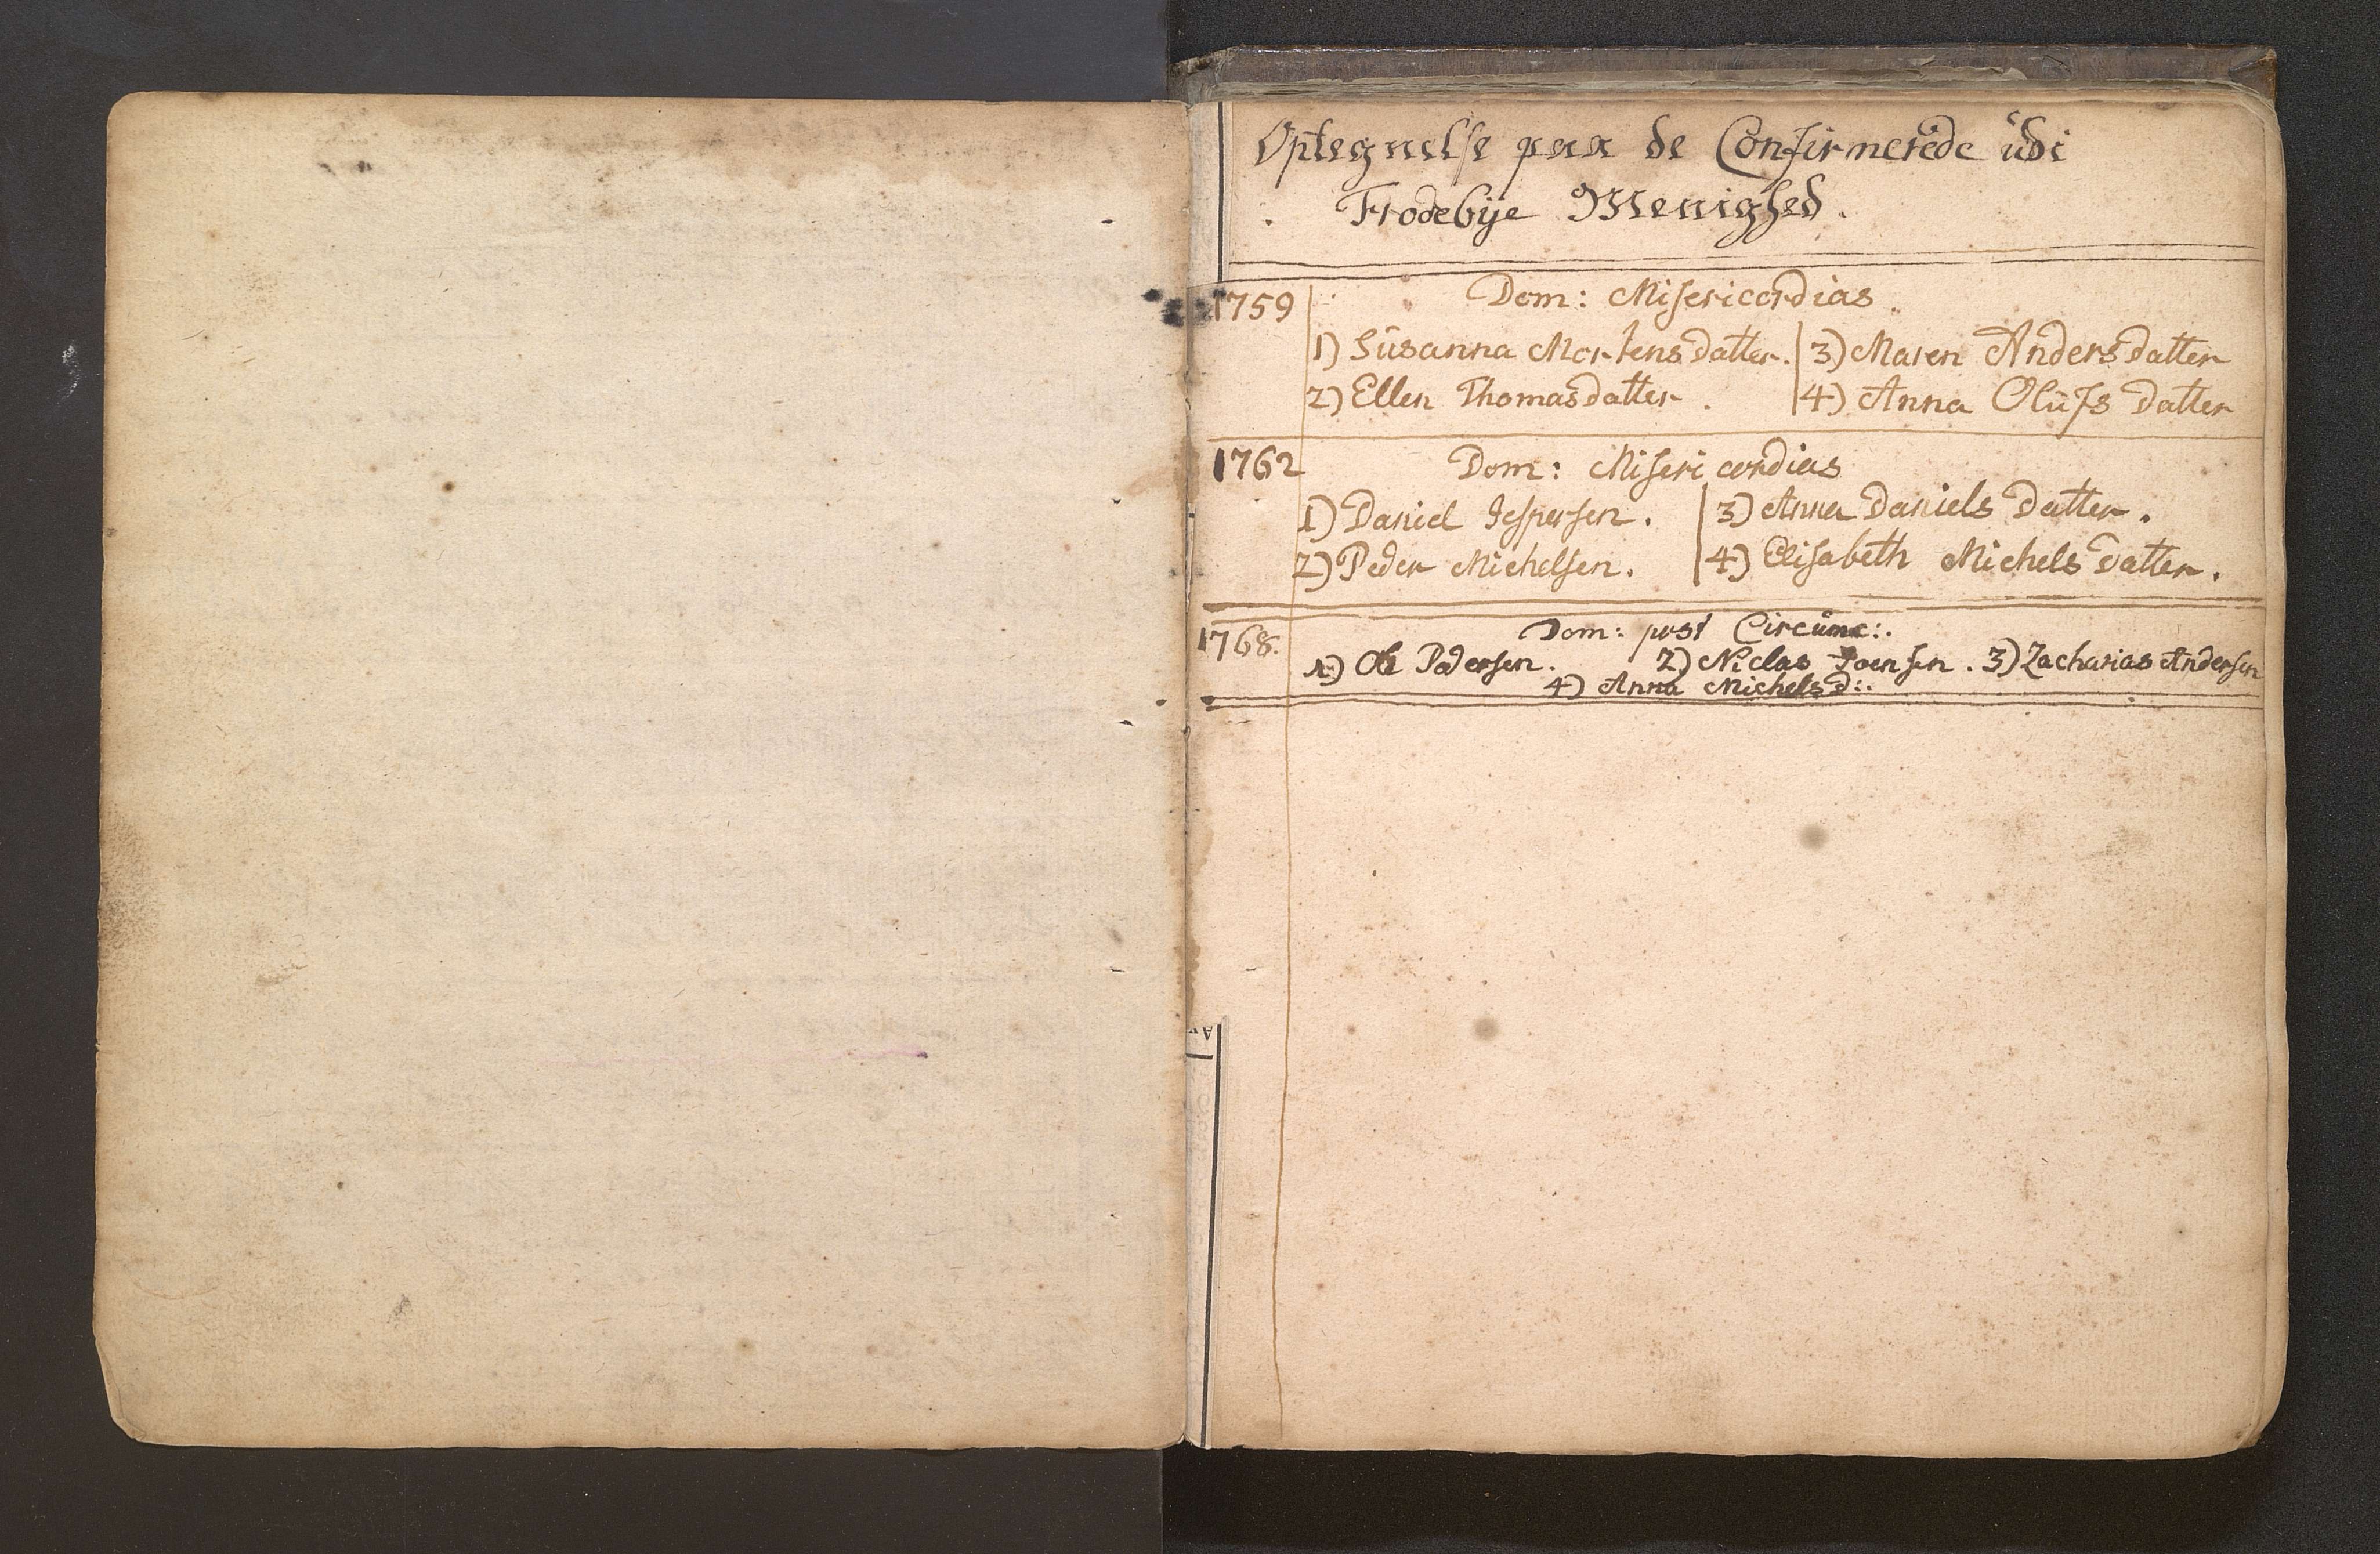 Optegnelse paa de Confirmerede üdi
Frodebÿe Menighed.
1759
Dom: Misericordias
1) Süsanna Mortens datter. 3) Maren Anders datter
2) Ellen Thomasdatter. 4) Anna Olüfs datter
1762
Dom: Misericordias
1) Daniel Jespersen. 3) Anna Daniels datter.
2) Peder Michelsen. 4) Elisabeth Michels datter.
1768.
Dom: post Circümc:.
1) Ole Pedersen. 2) Niclas Joensen. 3) Zacharias Andersen
4) Anna Michels d:.